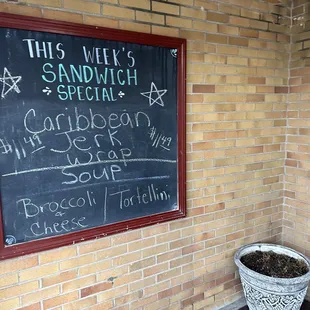 THIS WEEK'S
SANDWICH
SPECIAL
Caribbean
$11.49 Jerk $11.49
Wrap
SOUP
Broccoli / Tortellini
& Cheese